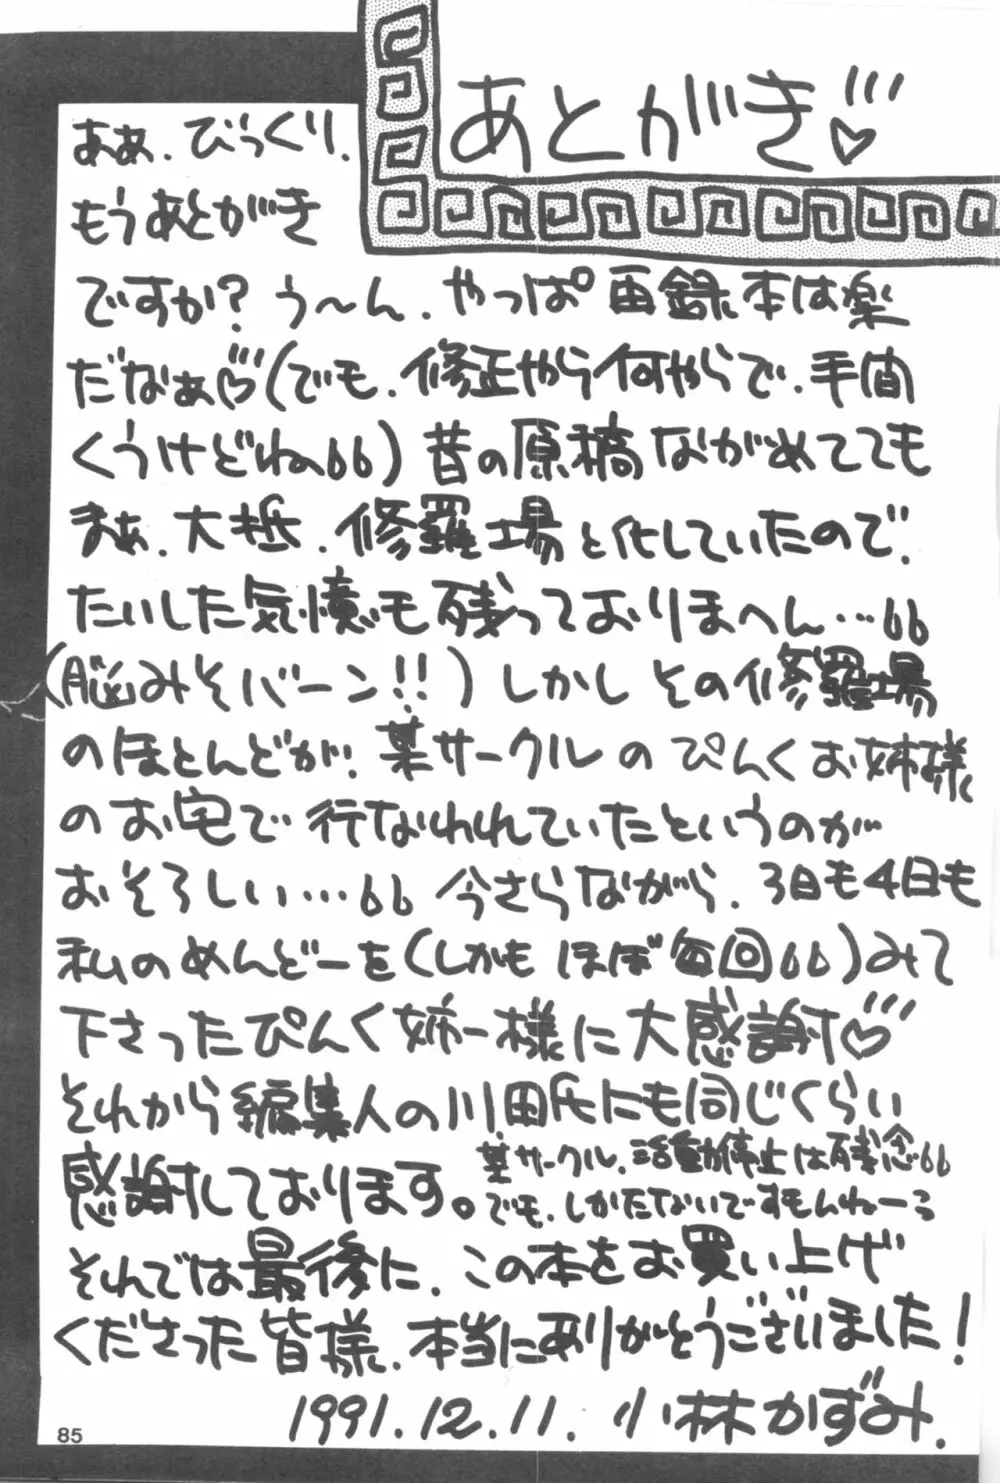 あとがき♡
あぁ、びっくり、
もうあとがき
ですか？う〜ん、やっぱ再録本は楽
だなぁ♡（でも、修正やら何やらで、手間
くうけどね〜）昔の原稿ながめてても
まぁ、大抵、修羅場と化していたので、
たいした記憶も残っておりまへん…
（脳みそバーン!!）しかしその修羅場
のほとんどが、某サークルのぴんくお姉様
のお宅で行なわれていたというのが
おそろしい… 今さらながら、3日も4日も
私のめんどーを（しかもほぼ毎回）みて
下さったぴんく姉様に大感謝♡
それから編集人の川田氏にも同じくらい
感謝しております。
某サークル、活動停止は残念
でも、しかたないですもんねーぅ
それでは最後に、この本をお買い上げ
くださった皆様、本当にありがとうございました！
1991.12.11. 小林かずみ.
85